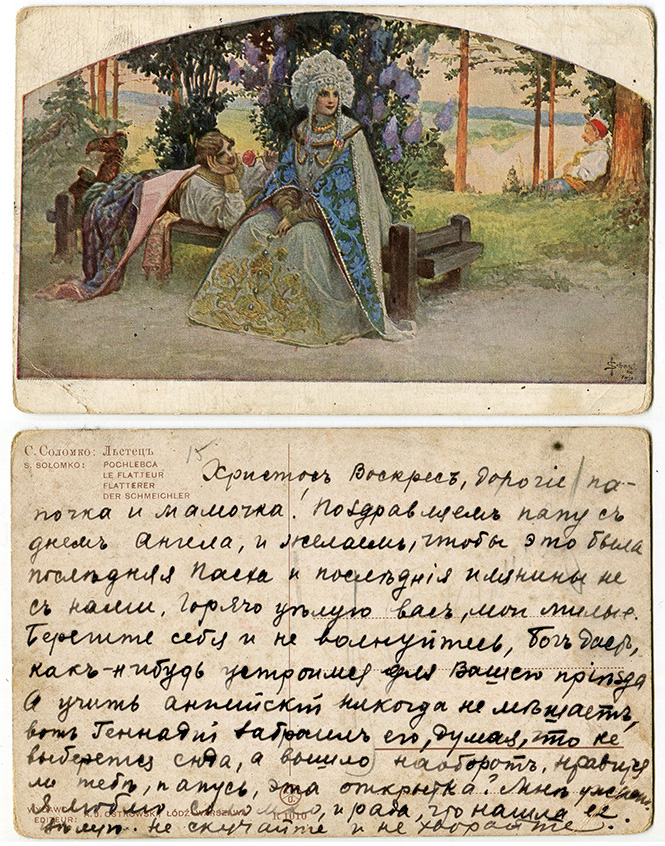 С. Соломко: Льстецъ
S. SOŁOMKO: POCHLEBCA
LE FLATTEUR
FLATTERER
DER SCHMEICHLER
15
Христосъ Воскресъ, дорогіе па-
почка и мамочка! Поздравляемъ папу съ
днемъ Ангела, и желаемъ, чтобы это была
послѣдняя Пасха и послѣднія имянины не
съ нами. Горячо цѣлую васъ, мои милые.
Берегите себя и не волнуйтесь, Богъ дастъ,
какъ-нибудь устроимся для Вашего пріѣзда
А учить английскій никогда не мѣшаетъ,
вотъ Геннадій забраилъ его, думая, что не
выберется сюда, а вышло наоборотъ, нравится
ли тебѣ, папусь, эта открытка? Мнѣ ужасно.
Я люблю и рада, что нашла ее.
Цѣлую. не скучайте и не хворайте.
EDITEUR: A. J. OSTROWSKI, ŁÓDŹ-WARSZAWA
K 1010